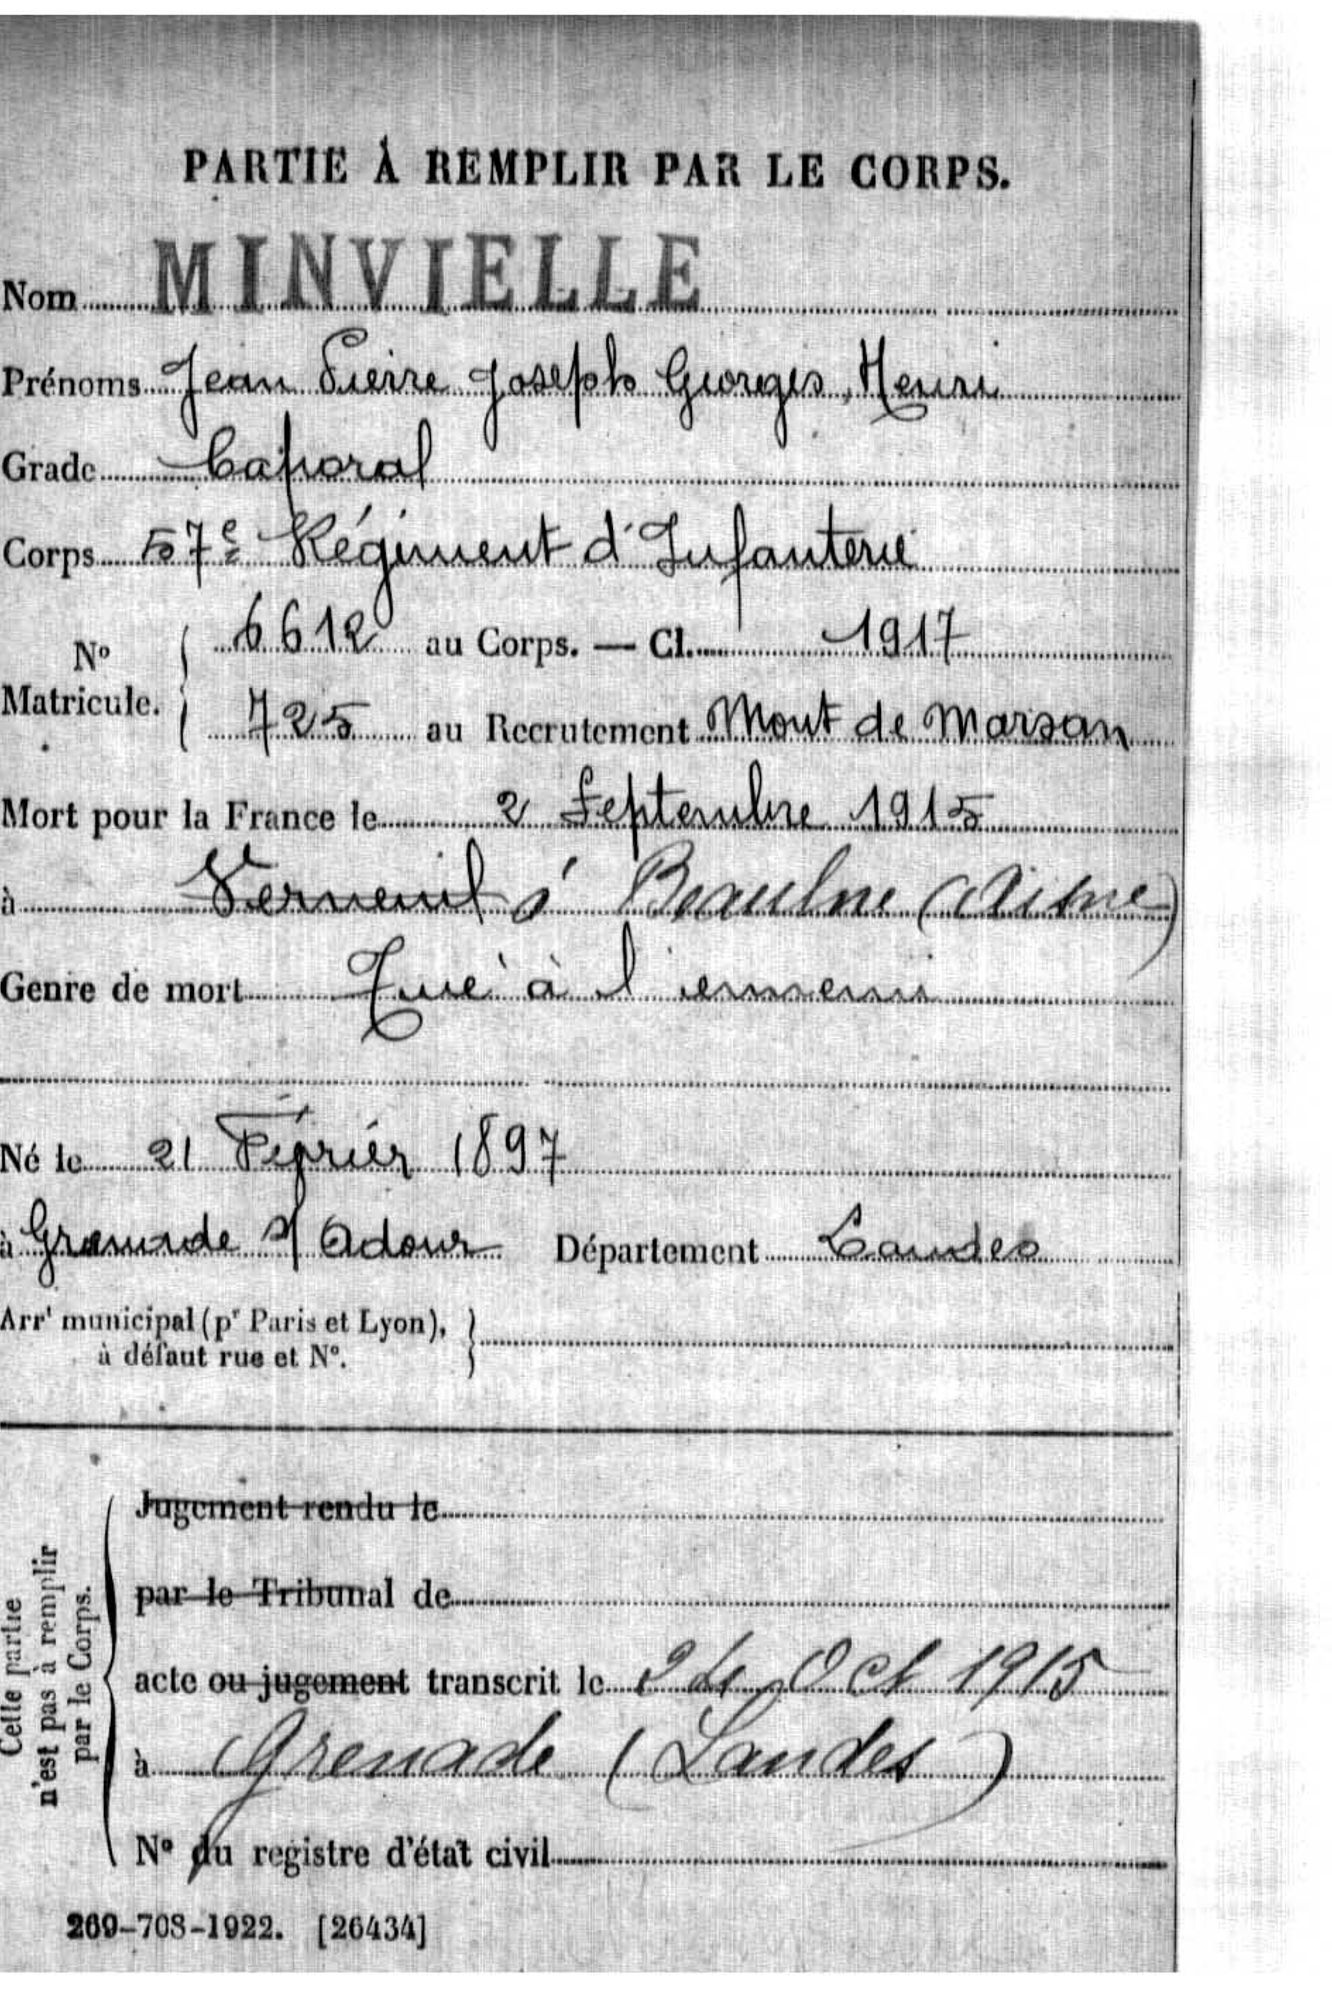 PARTIE À REMPLIR PAR LE CORPS.
Nom MINVIELLE
Prénoms Jean Pierre Joseph Georges, Henri
Grade Caporal
Corps 57e Régiment d'Infanterie
N° Matricule. { 6612 au Corps. — Cl. 1917
725 au Recrutement Mont de Marsan
Mort pour la France le 2 Septembre 1915
à Verneuil à Beaulne (Aisne)
Genre de mort Tué à l'ennemi
Né le 21 Février 1897
à Grenade s/ Adour Département Landes
Arrt municipal (pr Paris et Lyon), }
à défaut rue et N°.
Cette partie
n'est pas à remplir
par le Corps.
Jugement rendu le
par le Tribunal de
acte ou jugement transcrit le 24 Oct 1915
à Grenade (Landes)
N° du registre d'état civil
269-708-1922. [26434]